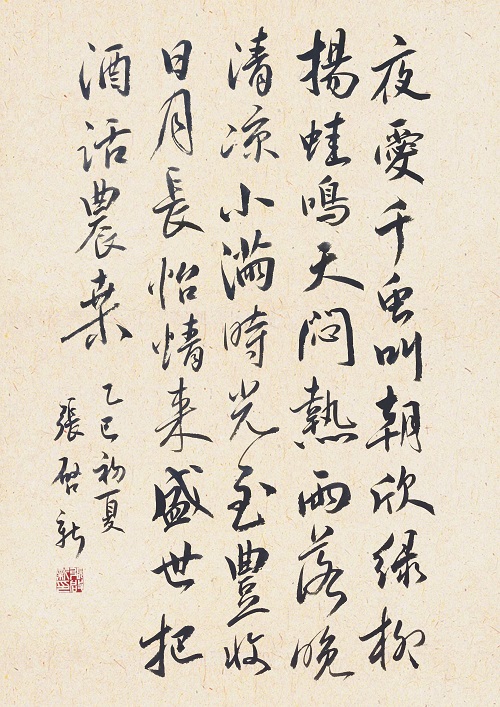 夜愛千虫叫朝欣绿柳
揚蛙鳴天悶熱雨落晚
清凉小满時光至豊收
日月長怡情来盛世把
酒话農桒
乙巳初夏
張啓新